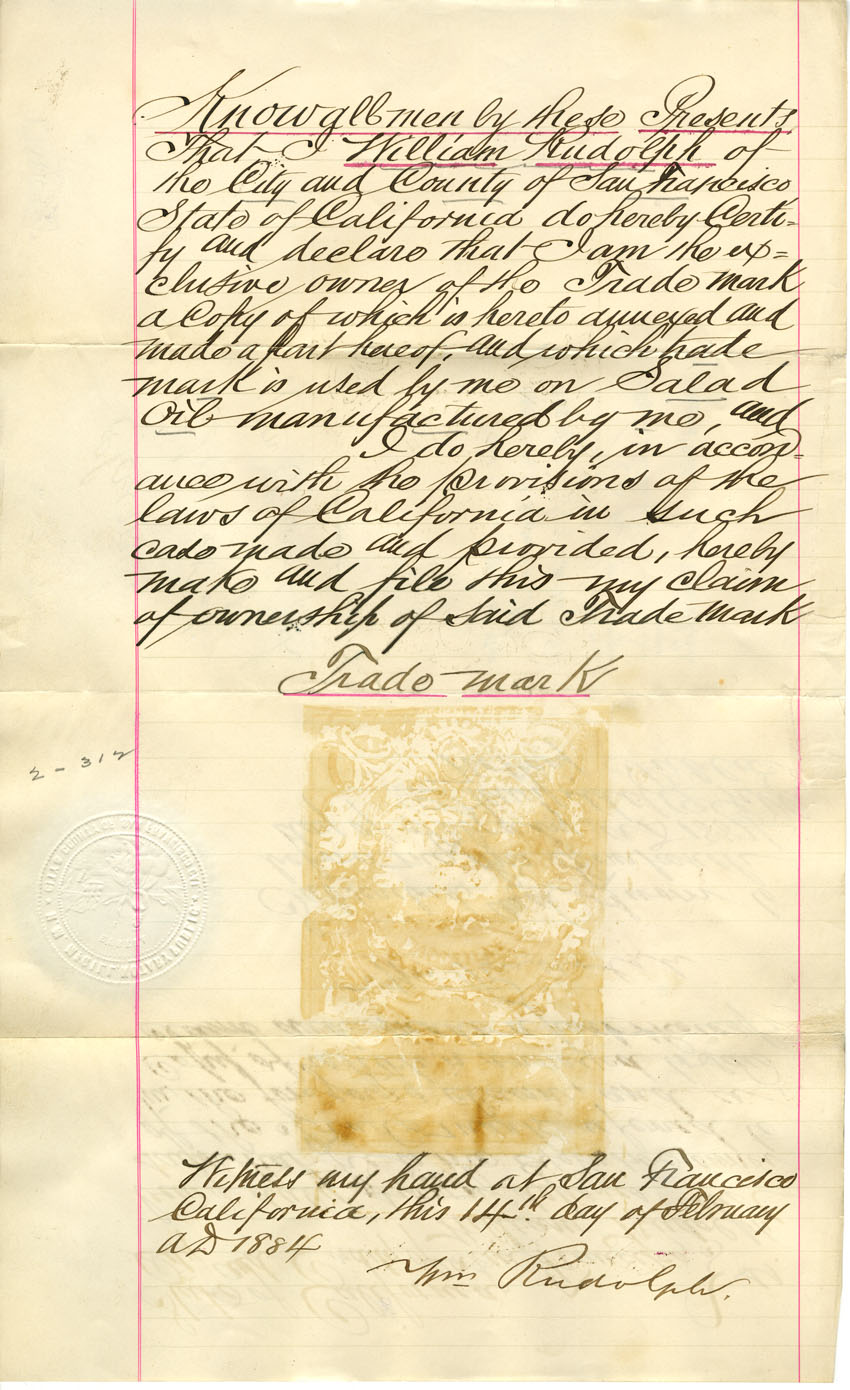 Know all men by these Presents
That I William Rudolph of
the City and County of San Francisco,
State of California do hereby Certi=
fy and declare that I am the ex=
clusive owner of the Trade mark
a Copy of which is hereto annexed and
made a part hereof, and which trade
mark is used by me on Salad
Oil manufactured by me, and
I do hereby, in accord-
ance with the provisions of the
laws of California in such
case made and provided, hereby
make and file this my claim
of ownership of said Trade mark
Trade mark
2 - 312
NOTARY PUBLIC
Witness my hand at San Francisco
California, this 14th. day of February
AD 1884
Wm Rudolph.